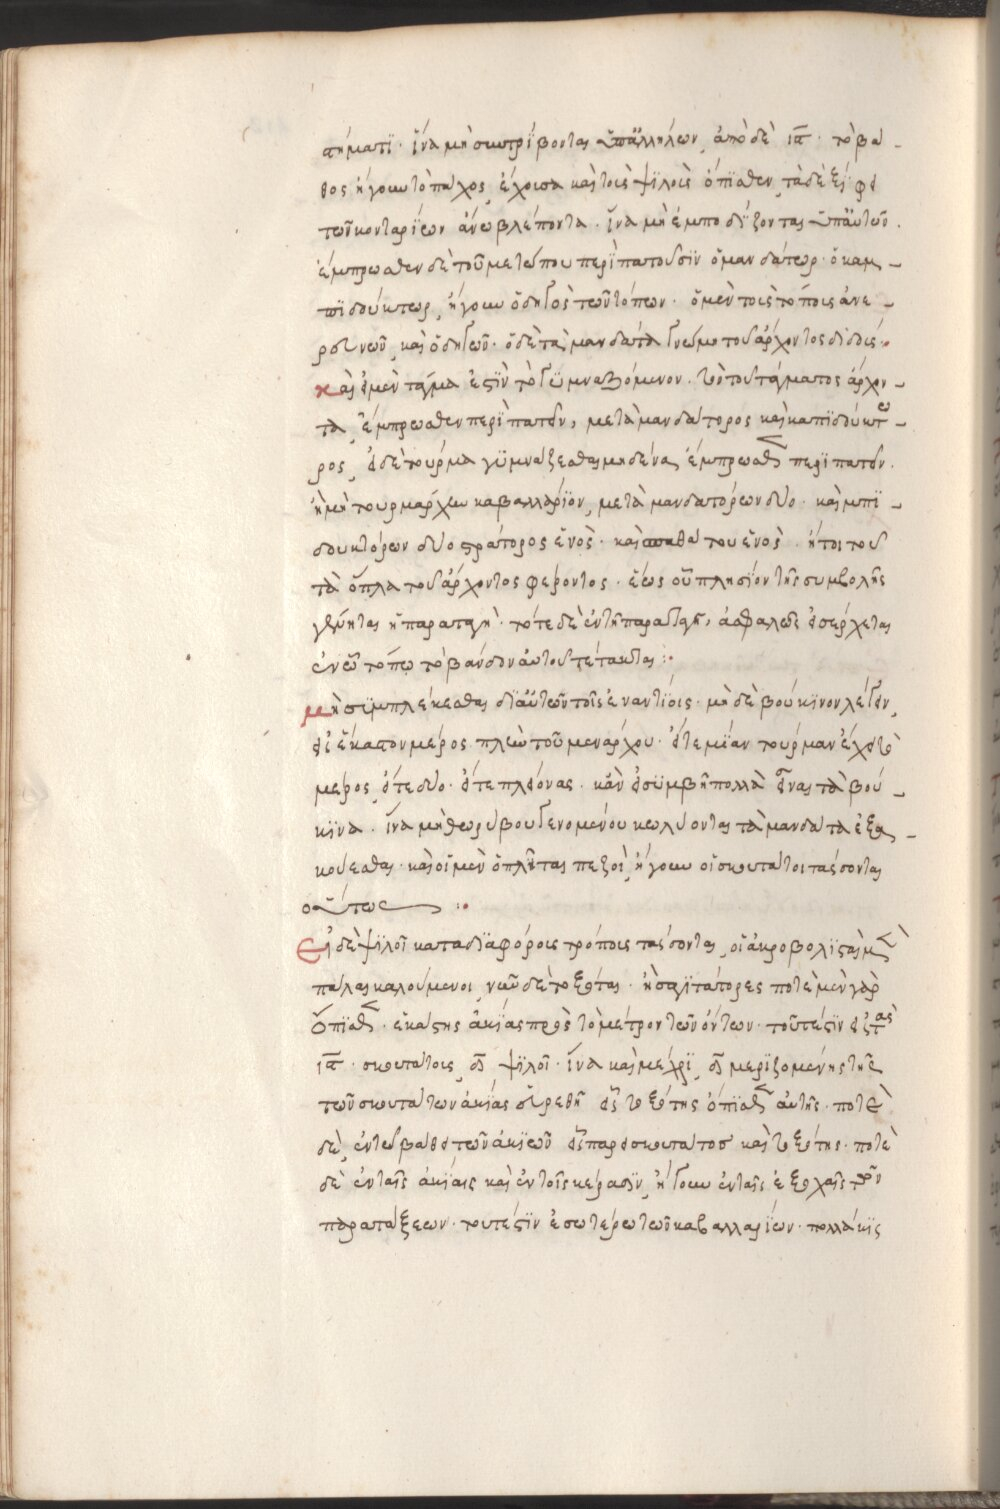 στήματϊ · ἵνα μὴ συντρίβονται ὑπἀλλήλων, ἀπὸ δὲ ιϛ · τὸ βά-
θος ἤγουν τὸ πάχος, ἔχουσα καὶ τοὺς ψϊλοὺς ὄπϊσθεν, τὰ δὲ ξΐφη
τῶν κονταρΐων ἄνω βλέποντα · ἵνα μὴ ἐμποδΐζονται ὑπἀυτῶν.
ἔμπρωσθεν δὲ τοῦ μετώπου περϊπατοῦσϊν ὁ μανδάτωρ · ὁ καμ-
πϊδούκτωρ, ἤγουν ὁδηγὸς τῶν τόπων · ὁ μὲν τοὺς τόπους ἀνε-
ρευνῶν, καὶ ὁδηγῶν · ὁ δὲ τὰ μανδάτα γνώμη τοῦ ἄρχοντος δϊδούς ·
καὶ εἰ μὲν τάγμα ἐστΐν τὸ γϋμναζόμενον · τὸν τοῦ τάγματος ἄρχον-
τα, ἔμπρωσθεν περϊπατεῖν, μετὰ μανδάτορος καὶ καπϊδούκτω-
ρος, εἰ δὲ τούρμα γϋμνάζεσθαι μηδένα, ἔμπρωσθεν περϊπατεῖν.
ἢ μὴ τουρμάρχων καβαλλάρϊον, μετὰ μανδατόρων δύο · καὶ μπϊ-
δουκτόρων δύο στράτορος ἑνὸς · καὶ σπαθάτου ἑνὸς · ἤτοι τοῦ
τὰ ὅπλα τοῦ ἄρχοντος φέροντος · ἕως οὗ πλησΐον τῆς συμβολῆς
γένηται ἡ παραταγὴ · τότε δὲ ἐν τῆ παραταγῆ, ἀσφαλῶς εἰσέρχεται
ἐν ὧ τόπω τὸ βάνδον ἀυτοῦ τέτακται :·
μὴ σϋμπλέκεσθαι δϊ ἀυτῶν τοῖς ἐναντΐοις · μὴ δὲ βούκϊνον λέγειν,
εἰς ἕκαστον μέρος πλεὼ τοῦ μενάρχου · εἴτε μΐαν τούρμαν ἔχει τὸ
μέρος, εἴτε δύο · εἴτε πλείονας · κἂν εἰ σϋμβῆ πολλὰ εἶναι τὰ βού-
κϊνα · ἵνα μὴ θωρύβου γενομένου κωλύονται τὰ μανδάτα ἐξα-
κούεσθαι · καὶ οἱ μὲν ὁπλῖται πεζοὶ, ἤγουν οἱ σκουτάτοι τάσσονται
οὕτως :·
Εἰ δὲ ψϊλοῖ κατὰ δϊαφόρους τρόπους τάσσονται, οἱ ἀκροβολϊσταὶ μὲν
πάλαι καλούμενοι, νῦν δὲ τοξόται · ἢ σαγϊτάτορες ποτὲ μὲν γὰρ
ὄπϊσθεν · ἑκάστης ἀκΐας πρὸς τὸ μέτρον τῶν ὄντων · τοῦτέστϊν εἰς τὰς
ιϛ · σκουτάτους, δ ψϊλοῖ · ἵνα καὶ μέχρϊ, δ μερϊζομένης τῆς
τῶν σκουτάτων ἀκΐας εὑρεθῆ εἷς τοξότης ὄπϊσθεν ἀυτῆς · ποτὲ
δὲ, ἐν τῶ βάθει τῶν ἀκϊῶν εἷς παρεισκουτάτος καὶ τοξότης · ποτὲ
δὲ ἐν ταῖς ἀκΐαις καὶ ἐν τοῖς κέρασϊν, ἤγουν ἐν ταῖς ἐξοχαῖς τῶν
παρατάξεων · τουτέστϊν ἐσωτέρω τῶν καβαλλαρΐων · πολλάκϊς